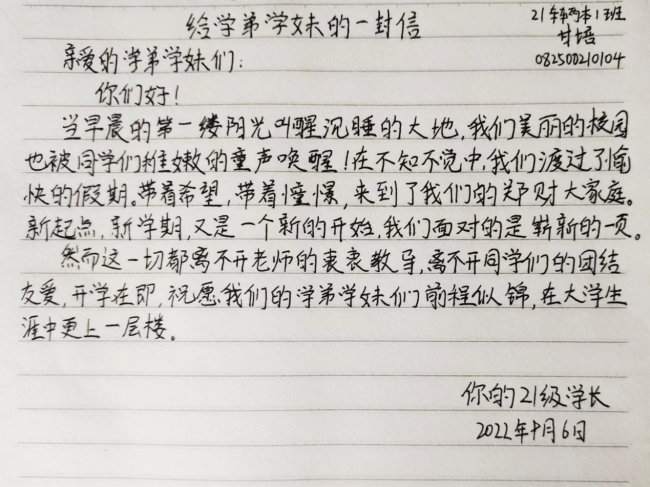 给学弟学妹的一封信
21年两本1班
甘培
082500210104
亲爱的学弟学妹们：
你们好！
当早晨的第一缕阳光叫醒沉睡的大地，我们美丽的校园
也被同学们稚嫩的童声唤醒！在不知不觉中，我们渡过了愉
快的假期。带着希望，带着憧憬，来到了我们的郑财大家庭。
新起点，新学期，又是一个新的开始，我们面对的是崭新的一页。
然而这一切都离不开老师的衷衷教导，离不开同学们的团结
友爱，开学在即，祝愿我们的学弟学妹们前程似锦，在大学生
涯中更上一层楼。
你的21级学长
2022年9月6日